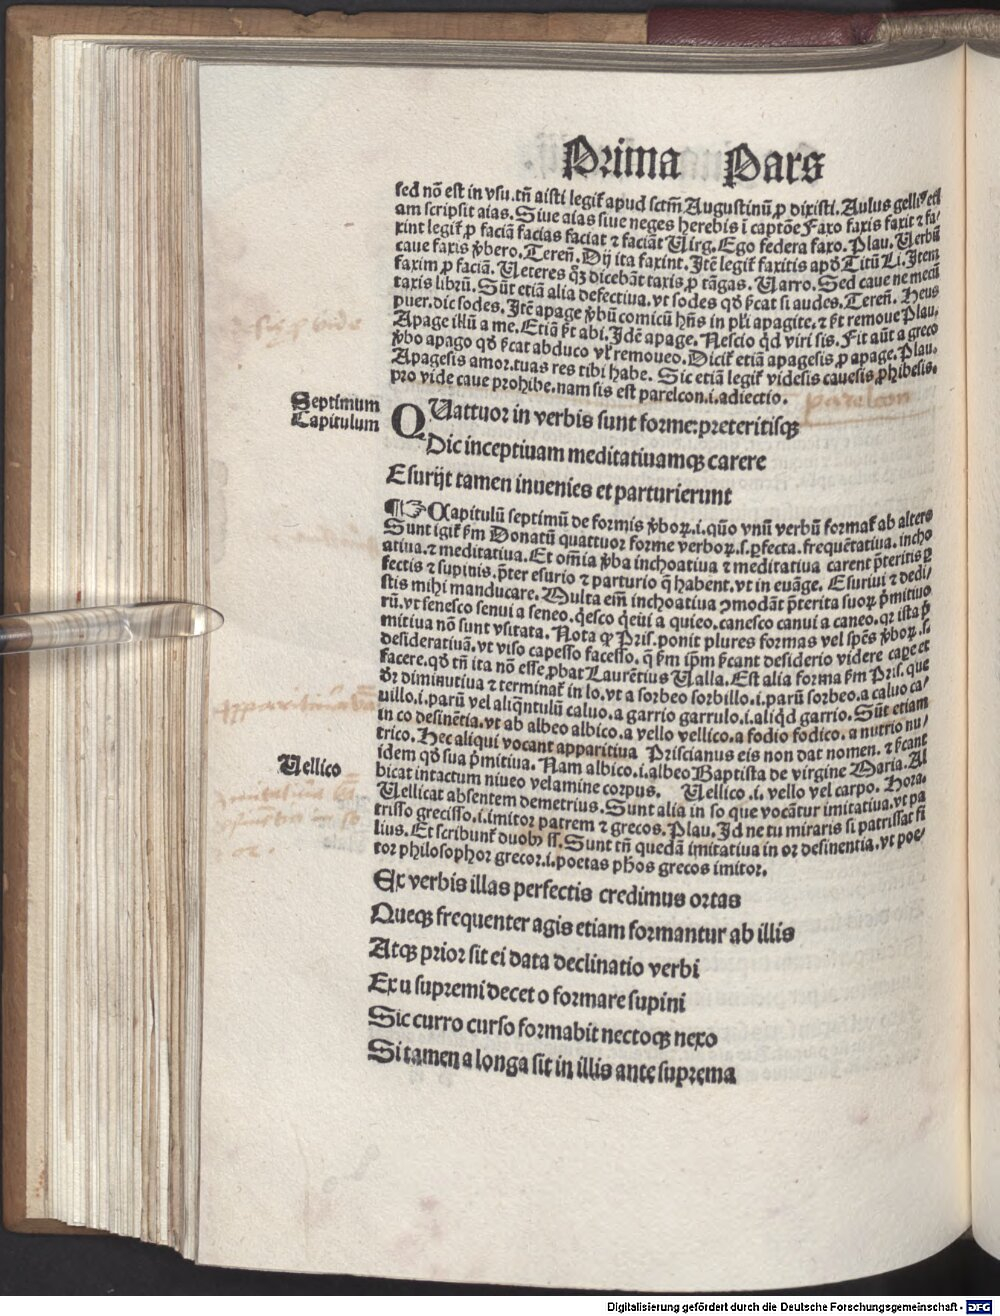 Prima Pars
sed nō est in vsu. tñ aisti legit̉ apud sctm̄ Augustinū ꝓ dixisti. Aulus gelliꝰ eti
am scripsit aias. Siue aias siue neges herebis ī captōe Faxo faxis faxit ⁊ fa
xint legit̉ ꝓ faciā facias faciat ⁊ faciāt Uirg. Ego federa faxo. Plau. Uerbū
caue faxis v̓bero. Tereñ. Dij ita faxint. Itē legit̉ faxitis apđ Titū Li. Item
faxim ꝓ faciā. Ueteres qꝫ dicebāt taxis ꝓ tāgas. Uarro. Sed caue ne mecū
taxis librū. Sūt etiā alia defectiua. vt sodes qđ sꝰcat si audes. Tereñ. Heus
puer. dic sodes. Itē apage v̓bū comicū hñs in pl̓i apagite. ⁊ sꝰt remoue Plau.
Apage illū a me. Etiā sꝰt abi. Idē apage. Nescio qđ viri sis. Fit aūt a greco
v̓bo apago qđ sꝰcat abduco vl̓ removeo. Dicit̉ etiā apagesis ꝓ apage. Plau.
Apagesis amor. tuas res tibi habe. Sic etiā legit̉ videsis cauesis ꝓhibesis.
pro vide caue prohibe. nam sis est parelcon .i. adiectio.
parelcon
Septimum
Capitulum
QUattuor in verbis sunt forme: preteritisqꝫ
Dic inceptiuam meditatiuamqꝫ carere
Esurijt tamen inuenies et parturierunt
¶☞ Capitulū septimū de formis v̓boꝝ .i. quō vnū verbū format̉ ab altero
Sunt igit̉ sꝰm Donatū quattuor forme verboꝝ .s. ꝑfecta. frequētatiua. incho
atiua. ⁊ meditatiua. Et om̄ia v̓ba inchoatiua ⁊ meditatiua carent p̄teritis ꝑ
fectis ⁊ supinis. p̄ter esurio ⁊ parturio q̄ habent. vt in euāge. Esuriui ⁊ dedi/
stis mihi manducare. Multa em̄ inchoatiua ꝯmodāt p̄terita suoꝝ p̓mitiuo
rū. vt senesco senui a seneo. q̓esco q̓eui a quieo. canesco canui a caneo. qr ista p̓
mitiua nō sunt vsitata. Nota ꝙ Pris. ponit plures formas vel sp̄es v̓boꝝ. s.
desideratiuā. vt viso capesso facesso. q̄ sꝰm ip̄m sꝰcant desiderio videre capere et
facere. qđ tñ ita nō esse ꝓbat Laurētius Ualla. Est alia forma sꝰm Pris. que
dr̄ diminutiua ⁊ terminat̉ in lo. vt a sorbeo sorbillo .i. parū sorbeo. a caluo ca/
uillo .i. parū vel aliqntulū caluo. a garrio garrulo .i. aliqđ garrio. Sūt etiam
in co desinētia. vt ab albeo albico. a vello vellico. a fodio fodico. a nutrio nu/
trico. Hec aliqui vocant apparitiua Priscianus eis non dat nomen. ⁊ sꝰcant
idem qđ sua p̓mitiua. Nam albico .i. albeo Baptista de virgine Maria. Al
bicat intactum niueo velamine corpus. Uellico .i. vello vel carpo. Hora.
Uellico
Uellicat absentem demetrius. Sunt alia in so que vocātur imitatiua. vt pa
trisso grecisso .i. imitor patrem ⁊ grecos. Plau. Id ne tu miraris si patrissat fi
lius. Et scribunt̉ duobꝰ ss. Sunt tñ quedā imitatiua in or desinentia. vt poe/
tor philosophor grecor .i. poetas phōs grecos imitor.
Ex verbis illas perfectis credimus ortas
Queqꝫ frequenter agis etiam formantur ab illis
Atqꝫ prior sit ei data declinatio verbi
Ex u supremi decet o formare supini
Sic curro curso formabit nectoqꝫ nexo
Si tamen a longa sit in illis ante suprema
Digitalisierung gefördert durch die Deutsche Forschungsgemeinschaft - DFG